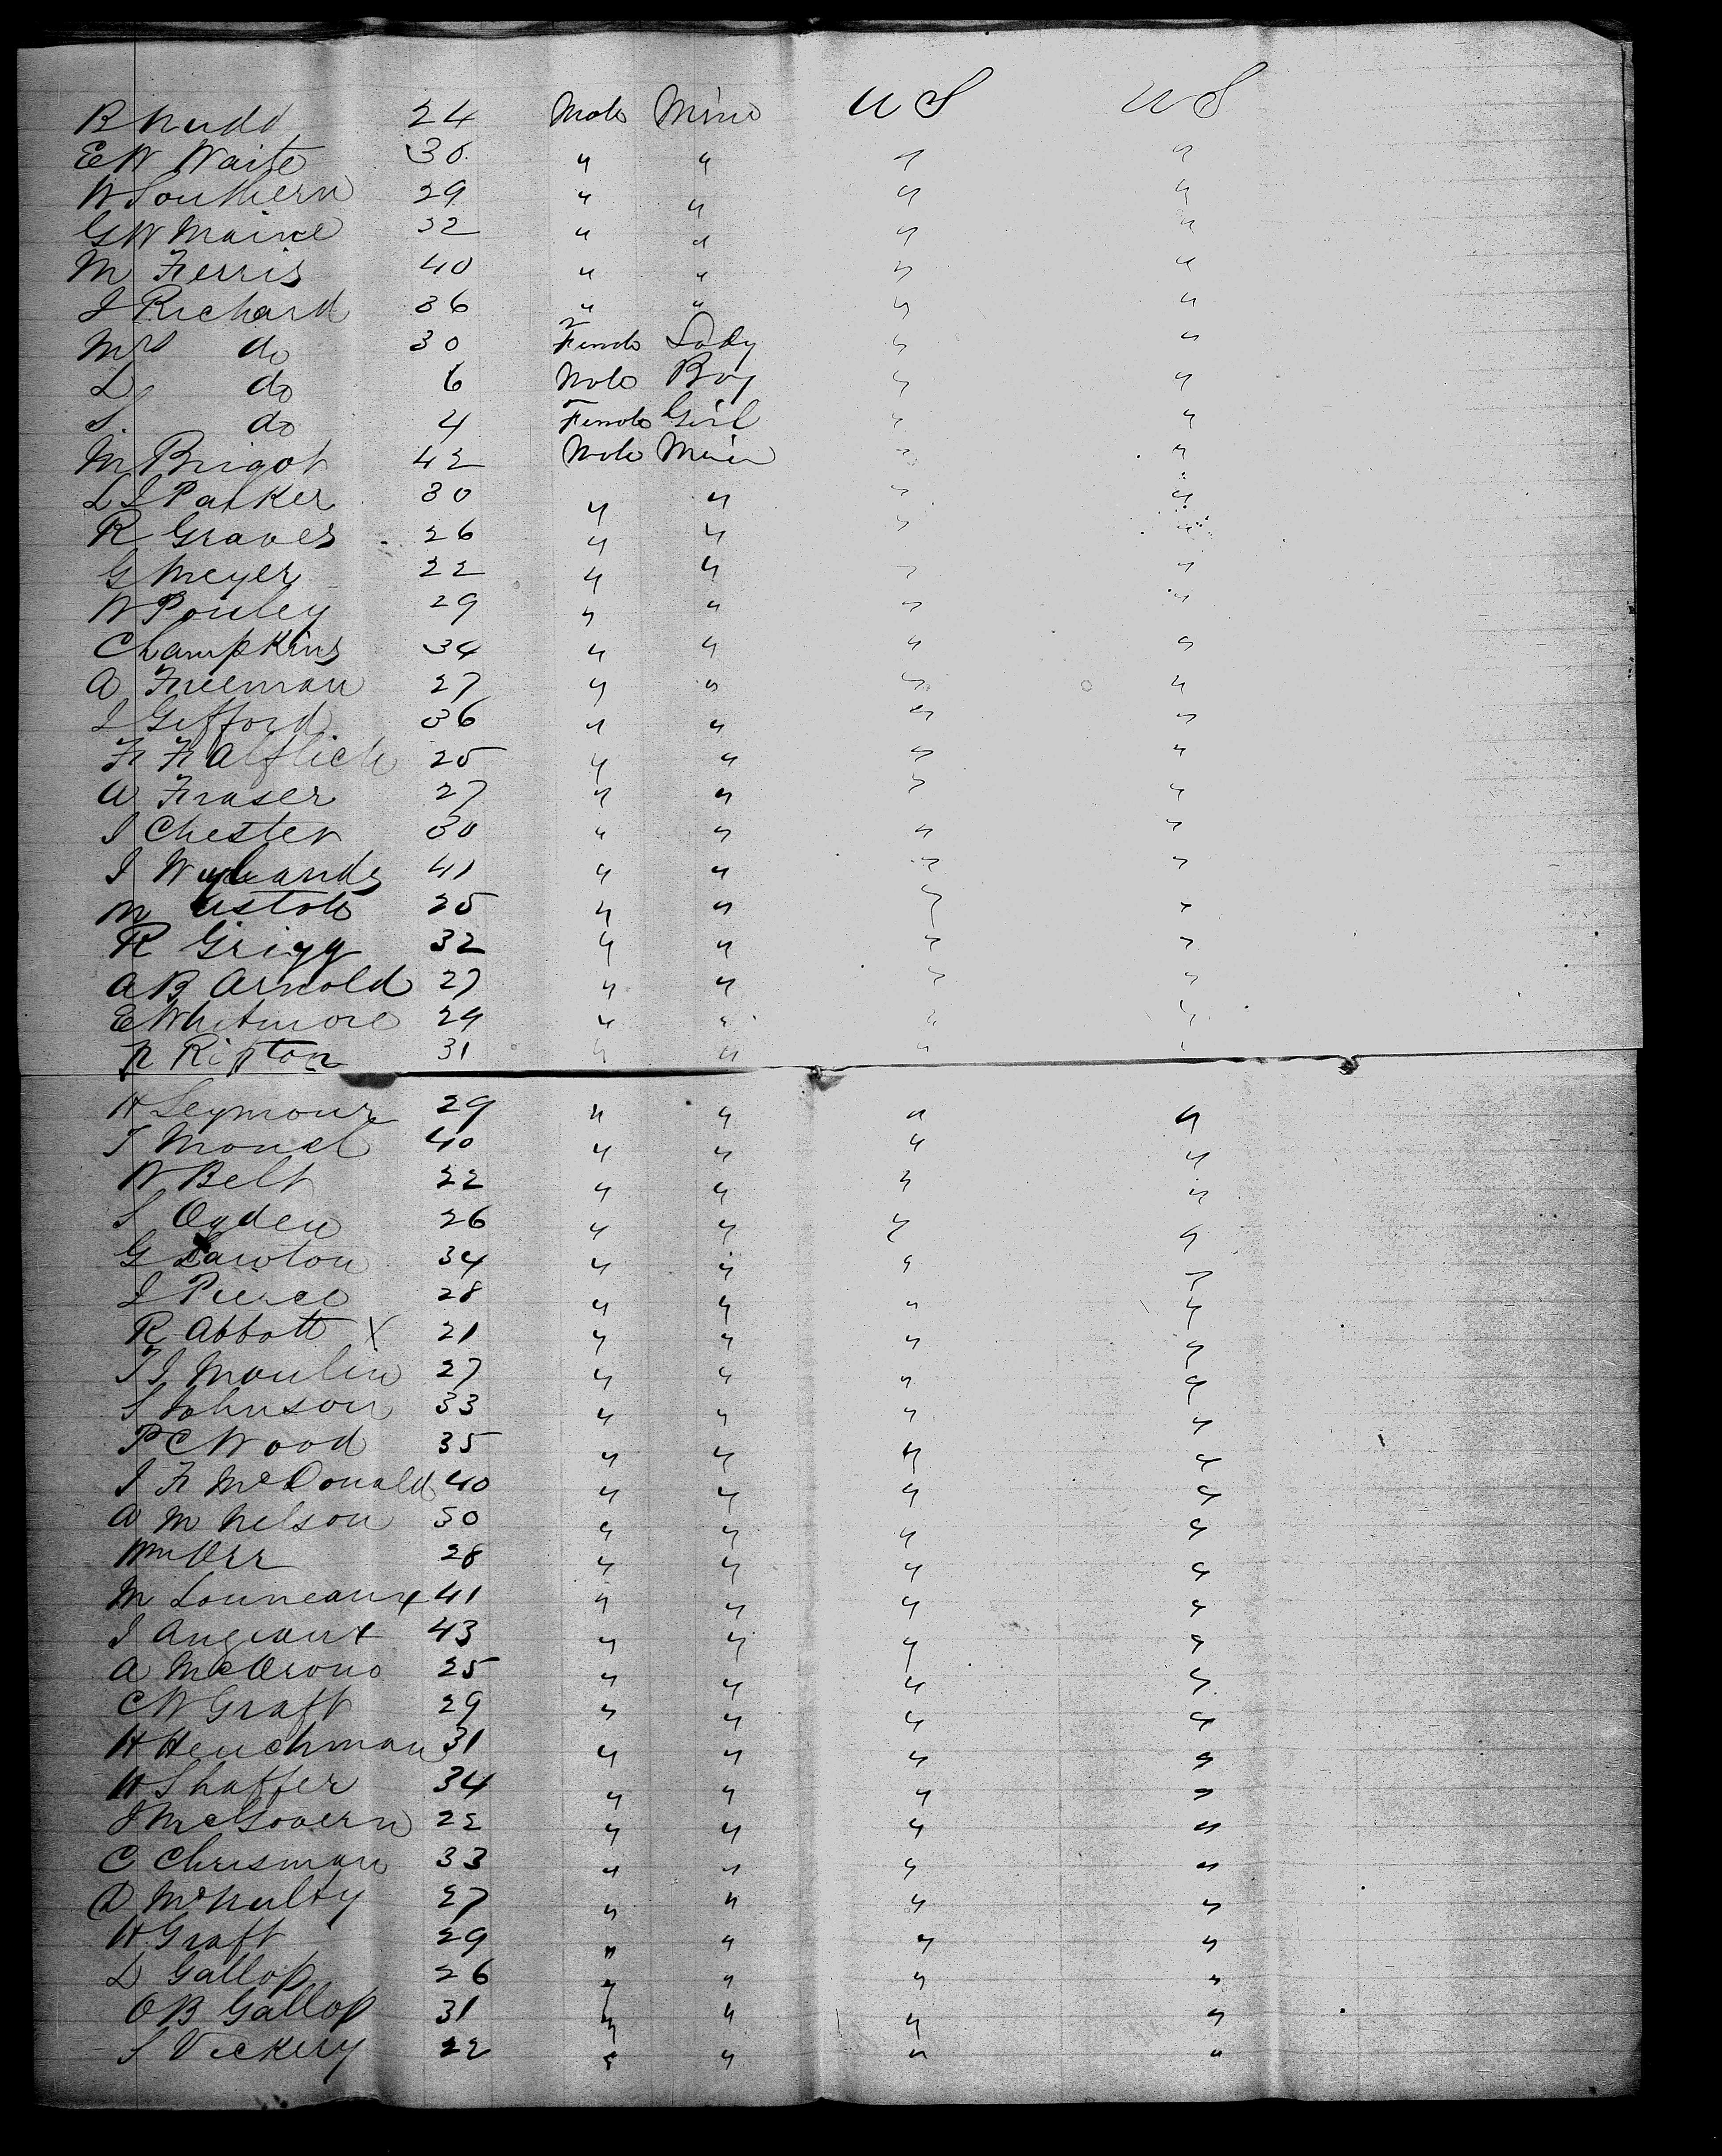 R Rudd 24 Male Miner U S U S
E W Waite 30 " " " "
W Southern 29 " " " "
G W Maine 32 " " " "
M Ferris 40 " " " "
J Richard 36 " " " "
Mrs do 30 Female Lady " "
L do 6 Male Boy " "
S. do 4 Female Girl " "
M Brigot 42 Male Miner " "
L J Parker 30 " " " "
R Graves 26 " " " "
G Meyer 22 " " " "
W Pouley 29 " " " "
C Lampkins 34 " " " "
A Freeman 27 " " " "
J Gifford 36 " " " "
F 25 " " " "
A Fraser 27 " " " "
J Chester 30 " " " "
J 41 " " " "
M 25 " " " "
R Grigg 32 " " " "
A B Arnold 27 " " " "
E Whitmore 29 " " " "
R Ripton 31 " " " "
H Seymour 29 " " " "
T 40 " " " "
W Belt 22 " " " "
S Ogden 26 " " " "
G Lawton 34 " " " "
J Pierce 28 " " " "
R Abbott X 21 " " " "
T J Moulin 27 " " " "
S Johnson 33 " " " "
P C Wood 35 " " " "
J F McDonald 40 " " " "
A M Nelson 30 " " " "
Wm Orr 28 " " " "
M Louneaux 41 " " " "
J 43 " " " "
A McCrono 25 " " " "
C W Graft 29 " " " "
H Henchman 31 " " " "
W Shaffer 34 " " " "
J McGovern 22 " " " "
C Chrisman 33 " " " "
D McNulty 27 " " " "
H Graft 29 " " " "
L Gallop 26 " " " "
O B Gallop 31 " " " "
S Vickery 22 " " " "